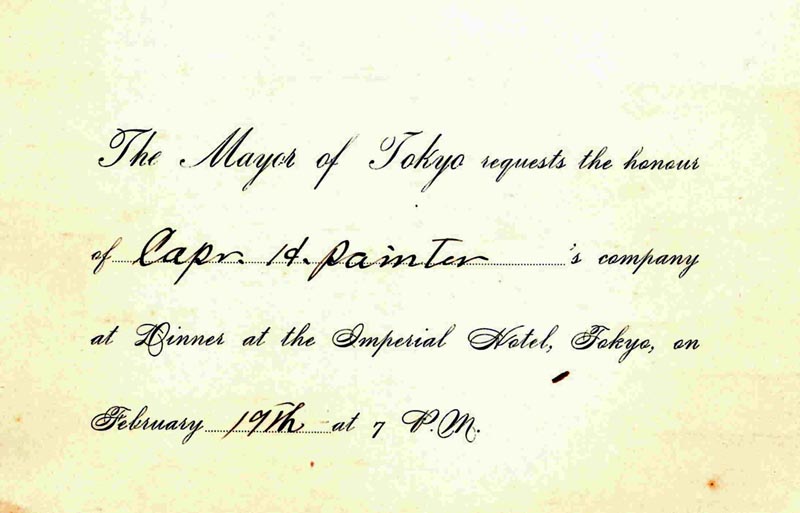 The Mayor of Tokyo requests the honour
of Capt. H. Painter 's company
at Dinner at the Imperial Hotel, Tokyo, on
February 19th at 7 P.M.